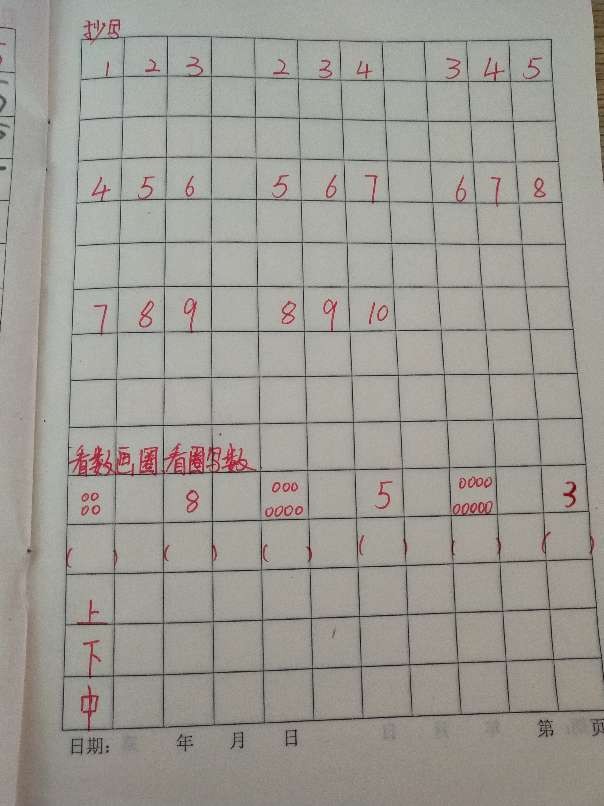 抄写
1 2 3 2 3 4 3 4 5
4 5 6 5 6 7 6 7 8
7 8 9 8 9 10
看数画圈 看圈写数
8 5 3
( ) ( ) ( ) ( ) ( ) ( )
上
下
中
日期: 年 月 日 第 页